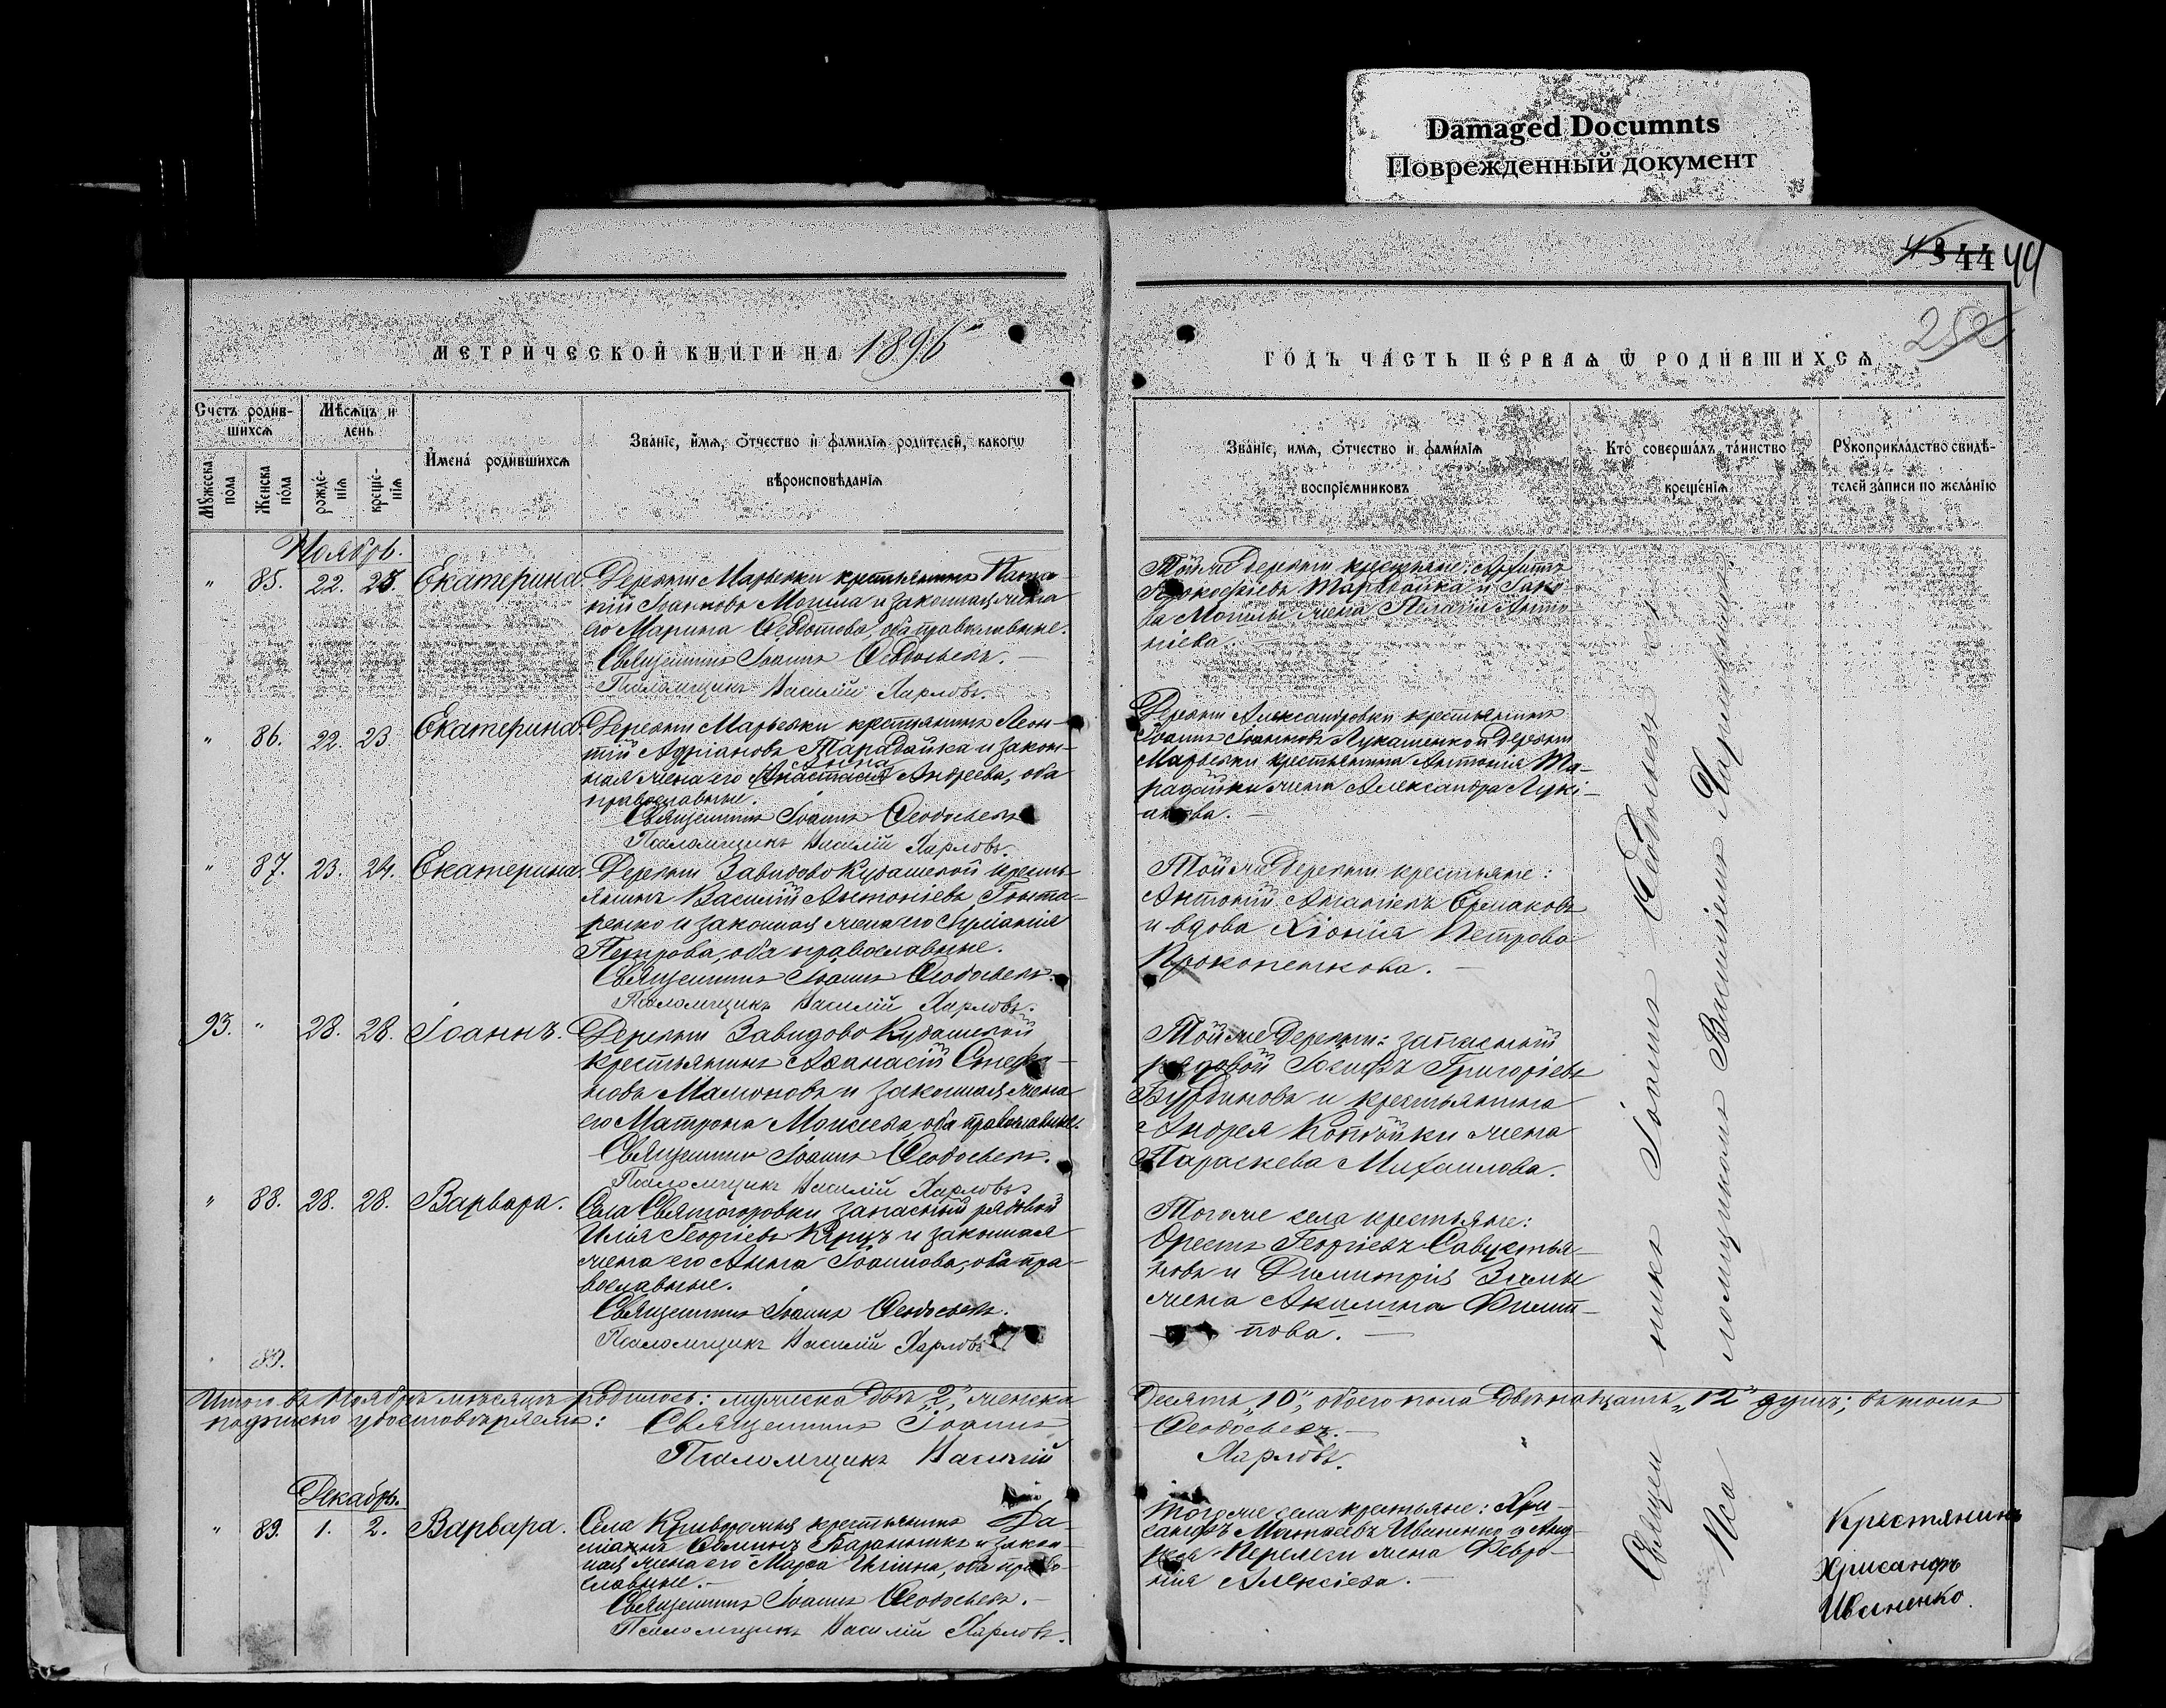 Damaged Documnts
Поврежденный документ
44 44
252
МЕТРИЧЕСКОЙ КНИГИ НА 1896
ГОДЪ ЧАСТЬ ПЕРВАЯ Ѿ РОДИВШИХСѦ
Счетъ родив-
шихсѧ
Мѣсѧцъ и
день
Мꙋжеска
пола
Женска
пола
рожде-
нїѧ
креще-
нїѧ
Имена родившихсѧ
Званїе, имѧ, ѻтчество и фамилїѧ родителей, какогѡ
вѣроисповѣданїѧ
Званїе, имѧ, ѻтчество и фамилїѧ
воспрїемниковъ
Кто совершалъ таинство
крещенїѧ
Рꙋкоприкладство свидѣ-
телей записи по желанїю
Ноябрь.
" 85. 22. 23. Екатерина.
Деревни Марьевки крестьянинъ
Іоанновъ Могила и законная жена
его Марина Ѳеодотова, оба православные.
Священникъ Іоаннъ Ѳеодосьевъ.
Псаломщикъ Василій Харловъ.
Той же деревни крестьяне:
Прокофіевъ Тарадайка и
Могилы жена Анто-
ніева.
" 86. 22. 23 Екатерина.
Деревни Марьевки крестьянинъ Леон-
тій Адріановъ Тарадайка и закон-
Анна
ная жена его (Анастасія) Андреева, оба
православные.
Священникъ Іоаннъ Ѳеодосьевъ
Псаломщикъ Василій Харловъ.
Деревни Александровки крестьянинъ
Іоаннъ Іоанновъ Лукашенко и деревни
Марьевки крестьянина Антонія Та-
радайки жена Александра Лукі-
анова.
" 87. 23. 24. Екатерина.
Деревни Завидово Кудашевой кресть-
янинъ Василій Антоніевъ
ренко и законная жена его Іуліанія
Петрова, оба православные.
Священникъ Іоаннъ Ѳеодосьевъ.
Псаломщикъ Василій Харловъ.
Той же деревни крестьяне:
Антоній Ананіевъ Ермаковъ
и вдова Хіонія Петрова
Прокопенкова.
93. " 28. 28. Іоаннъ.
Деревни Завидово Кудашевой
крестьянинъ Аѳанасій Стефа-
новъ Мамоновъ и законная жена
его Матрона Моисеева, оба православные.
Священникъ Іоаннъ Ѳеодосьевъ.
Псаломщикъ Василій Харловъ.
Той же деревни: запасный
рядовой Іосифъ Григоріевъ
Бурдиновъ и крестьянина
Андрея жена
Параскева Михаилова.
" 88. 28. 28. Варвара.
Села Святогоровки запасный рядовой
Илія Георгіевъ и законная
жена его Анна Іоаннова, оба пра-
вославные.
Священникъ Іоаннъ Ѳеодосьевъ.
Псаломщикъ Василій Харловъ
Того же села крестьяне:
Орестъ Георгіевъ Савустья-
новъ и Димитрія Зимы
жена Акилина Филип-
пова.
89.
Итого въ Ноябрѣ мѣсяцѣ родилось: мужеска два „2", женска
десять „10", обоего пола двѣнадцать „12" душъ; въ томъ
подписью удостовѣряемъ: Священникъ Іоаннъ
Ѳеодосьевъ.
Псаломщикъ Василій
Харловъ.
Декабрь.
" 89. 1. 2. Варвара.
Села Криворожья крестьянинъ Да-
міанъ и закон-
ная жена его Марѳа Ильина, оба право-
славные.
Священникъ Іоаннъ Ѳеодосьевъ.
Псаломщикъ Василій Харловъ.
Того же села крестьяне: Хри-
санѳъ Матѳеевъ Иваненко и Анд-
рея Перелеги жена Февро-
нія Алексіева.
Крестянинъ
Хрисанфъ
Иваненко.
Священникъ Іоаннъ Ѳеодосьевъ съ
Псаломщикомъ Василіемъ Харловымъ.